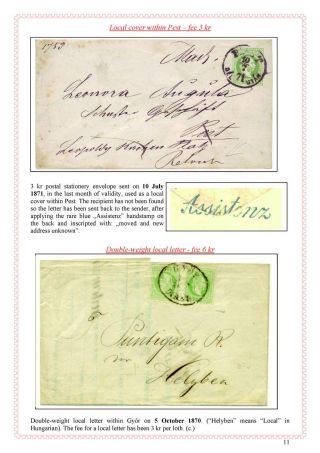 Local cover within Pest – fee 3 kr
1753
Leonora Augusta
Pest
Leopoldy
Retour
3 kr postal stationery envelope sent on 10 July
1871, in the last month of validity, used as a local
cover within Pest. The recipient has not been found
so the letter has been sent back to the sender, after
applying the rare blue „Assistenz” handstamp on
the back and inscripted with: „moved and new
address unknown”.
Assistenz
Double-weight local letter - fee 6 kr
Puntigam R.
Helyben
Double-weight local letter within Győr on 5 October 1870. (“Helyben” means “Local” in
Hungarian). The fee for a local letter has been 3 kr per loth. (c.)
11